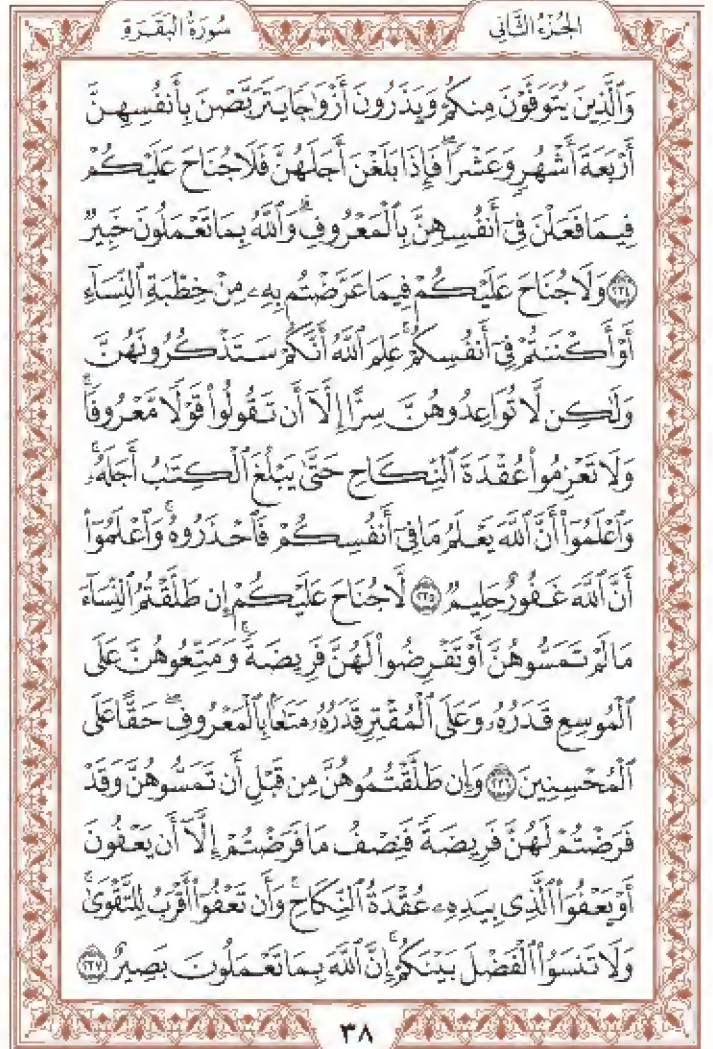 الجُزْءُ الثَّانِي سُورَةُ البَقَرَةِ
وَٱلَّذِينَ يُتَوَفَّوْنَ مِنكُمْ وَيَذَرُونَ أَزْوَٰجًا يَتَرَبَّصْنَ بِأَنفُسِهِنَّ
أَرْبَعَةَ أَشْهُرٍ وَعَشْرًا ۖ فَإِذَا بَلَغْنَ أَجَلَهُنَّ فَلَا جُنَاحَ عَلَيْكُمْ
فِيمَا فَعَلْنَ فِىٓ أَنفُسِهِنَّ بِٱلْمَعْرُوفِ ۗ وَٱللَّهُ بِمَا تَعْمَلُونَ خَبِيرٌ
﴿٢٣٤﴾ وَلَا جُنَاحَ عَلَيْكُمْ فِيمَا عَرَّضْتُم بِهِۦ مِنْ خِطْبَةِ ٱلنِّسَآءِ
أَوْ أَكْنَنتُمْ فِىٓ أَنفُسِكُمْ ۚ عَلِمَ ٱللَّهُ أَنَّكُمْ سَتَذْكُرُونَهُنَّ
وَلَٰكِن لَّا تُوَاعِدُوهُنَّ سِرًّا إِلَّآ أَن تَقُولُوا۟ قَوْلًا مَّعْرُوفًا ۚ
وَلَا تَعْزِمُوا۟ عُقْدَةَ ٱلنِّكَاحِ حَتَّىٰ يَبْلُغَ ٱلْكِتَٰبُ أَجَلَهُۥ ۚ
وَٱعْلَمُوٓا۟ أَنَّ ٱللَّهَ يَعْلَمُ مَا فِىٓ أَنفُسِكُمْ فَٱحْذَرُوهُ ۚ وَٱعْلَمُوٓا۟
أَنَّ ٱللَّهَ غَفُورٌ حَلِيمٌ ﴿٢٣٥﴾ لَّا جُنَاحَ عَلَيْكُمْ إِن طَلَّقْتُمُ ٱلنِّسَآءَ
مَا لَمْ تَمَسُّوهُنَّ أَوْ تَفْرِضُوا۟ لَهُنَّ فَرِيضَةً ۚ وَمَتِّعُوهُنَّ عَلَى
ٱلْمُوسِعِ قَدَرُهُۥ وَعَلَى ٱلْمُقْتِرِ قَدَرُهُۥ مَتَٰعًۢا بِٱلْمَعْرُوفِ ۖ حَقًّا عَلَى
ٱلْمُحْسِنِينَ ﴿٢٣٦﴾ وَإِن طَلَّقْتُمُوهُنَّ مِن قَبْلِ أَن تَمَسُّوهُنَّ وَقَدْ
فَرَضْتُمْ لَهُنَّ فَرِيضَةً فَنِصْفُ مَا فَرَضْتُمْ إِلَّآ أَن يَعْفُونَ
أَوْ يَعْفُوَا۟ ٱلَّذِى بِيَدِهِۦ عُقْدَةُ ٱلنِّكَاحِ ۚ وَأَن تَعْفُوٓا۟ أَقْرَبُ لِلتَّقْوَىٰ ۚ
وَلَا تَنسَوُا۟ ٱلْفَضْلَ بَيْنَكُمْ ۚ إِنَّ ٱللَّهَ بِمَا تَعْمَلُونَ بَصِيرٌ ﴿٢٣٧﴾
٣٨